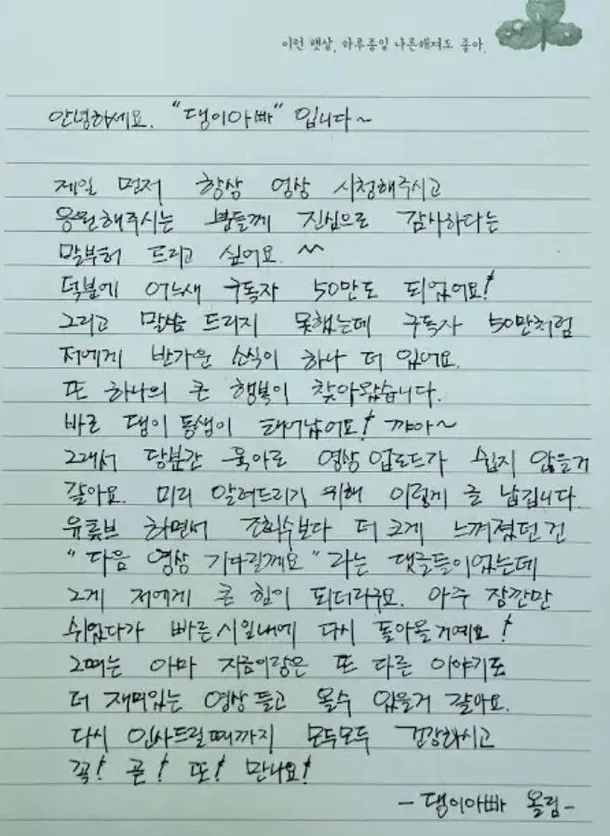 이런 햇살, 하루종일 나른해져도 좋아.
안녕하세요. "댕이아빠" 입니다~
제일 먼저 항상 영상 시청해주시고
응원해주시는 분들께 진심으로 감사하다는
말부터 드리고 싶어요 ^^
덕분에 어느새 구독자 50만도 되었어요!
그리고 말씀 드리지 못했는데 구독자 50만처럼
저에게 반가운 소식이 하나 더 있어요.
또 하나의 큰 행복이 찾아왔습니다.
바로 댕이 동생이 태어났어요! 꺄아~
그래서 당분간 육아로 영상 업로드가 쉽지 않을거
같아요. 미리 알려드리기 위해 이렇게 글 남깁니다
유튜브 하면서 조회수보다 더 크게 느껴졌던 건
"다음 영상 기다릴께요" 라는 댓글들이었는데
그게 저에게 큰 힘이 되더라구요. 아주 잠깐만
쉬었다가 빠른시일내에 다시 돌아올거예요!
그때는 아마 지금이랑은 또 다른 이야기로
더 재미있는 영상 들고 올수 있을거 같아요.
다시 인사드릴때까지 모두모두 건강하시고
꼭! 곧! 또! 만나요!
- 댕이아빠 올림 -